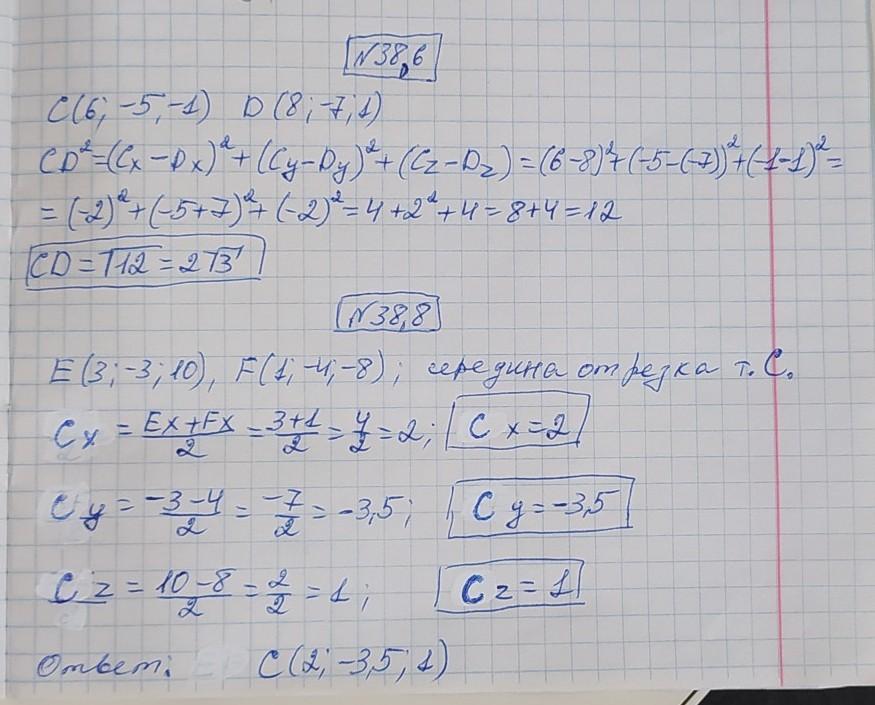 N38,6
C(6; -5; -1) D(8; -7; 1)
CD²=(Cx-Dx)²+(Cy-Dy)²+(Cz-Dz)=(6-8)²+(-5-(-7))²+(-1-1)²=
=(-2)²+(-5+7)²+(-2)²=4+2²+4=8+4=12
CD=√12=2√3
N38,8
E(3; -3; 10), F(1; -4; -8); середина отрезка т. C.
Cx = Ex+Fx/2 = 3+1/2 = 4/2 = 2; Cx=2
Cy = -3-4/2 = -7/2 = -3,5; Cy=-3,5
Cz = 10-8/2 = 2/2 = 1; Cz=1
Ответ: C(2; -3,5; 1)